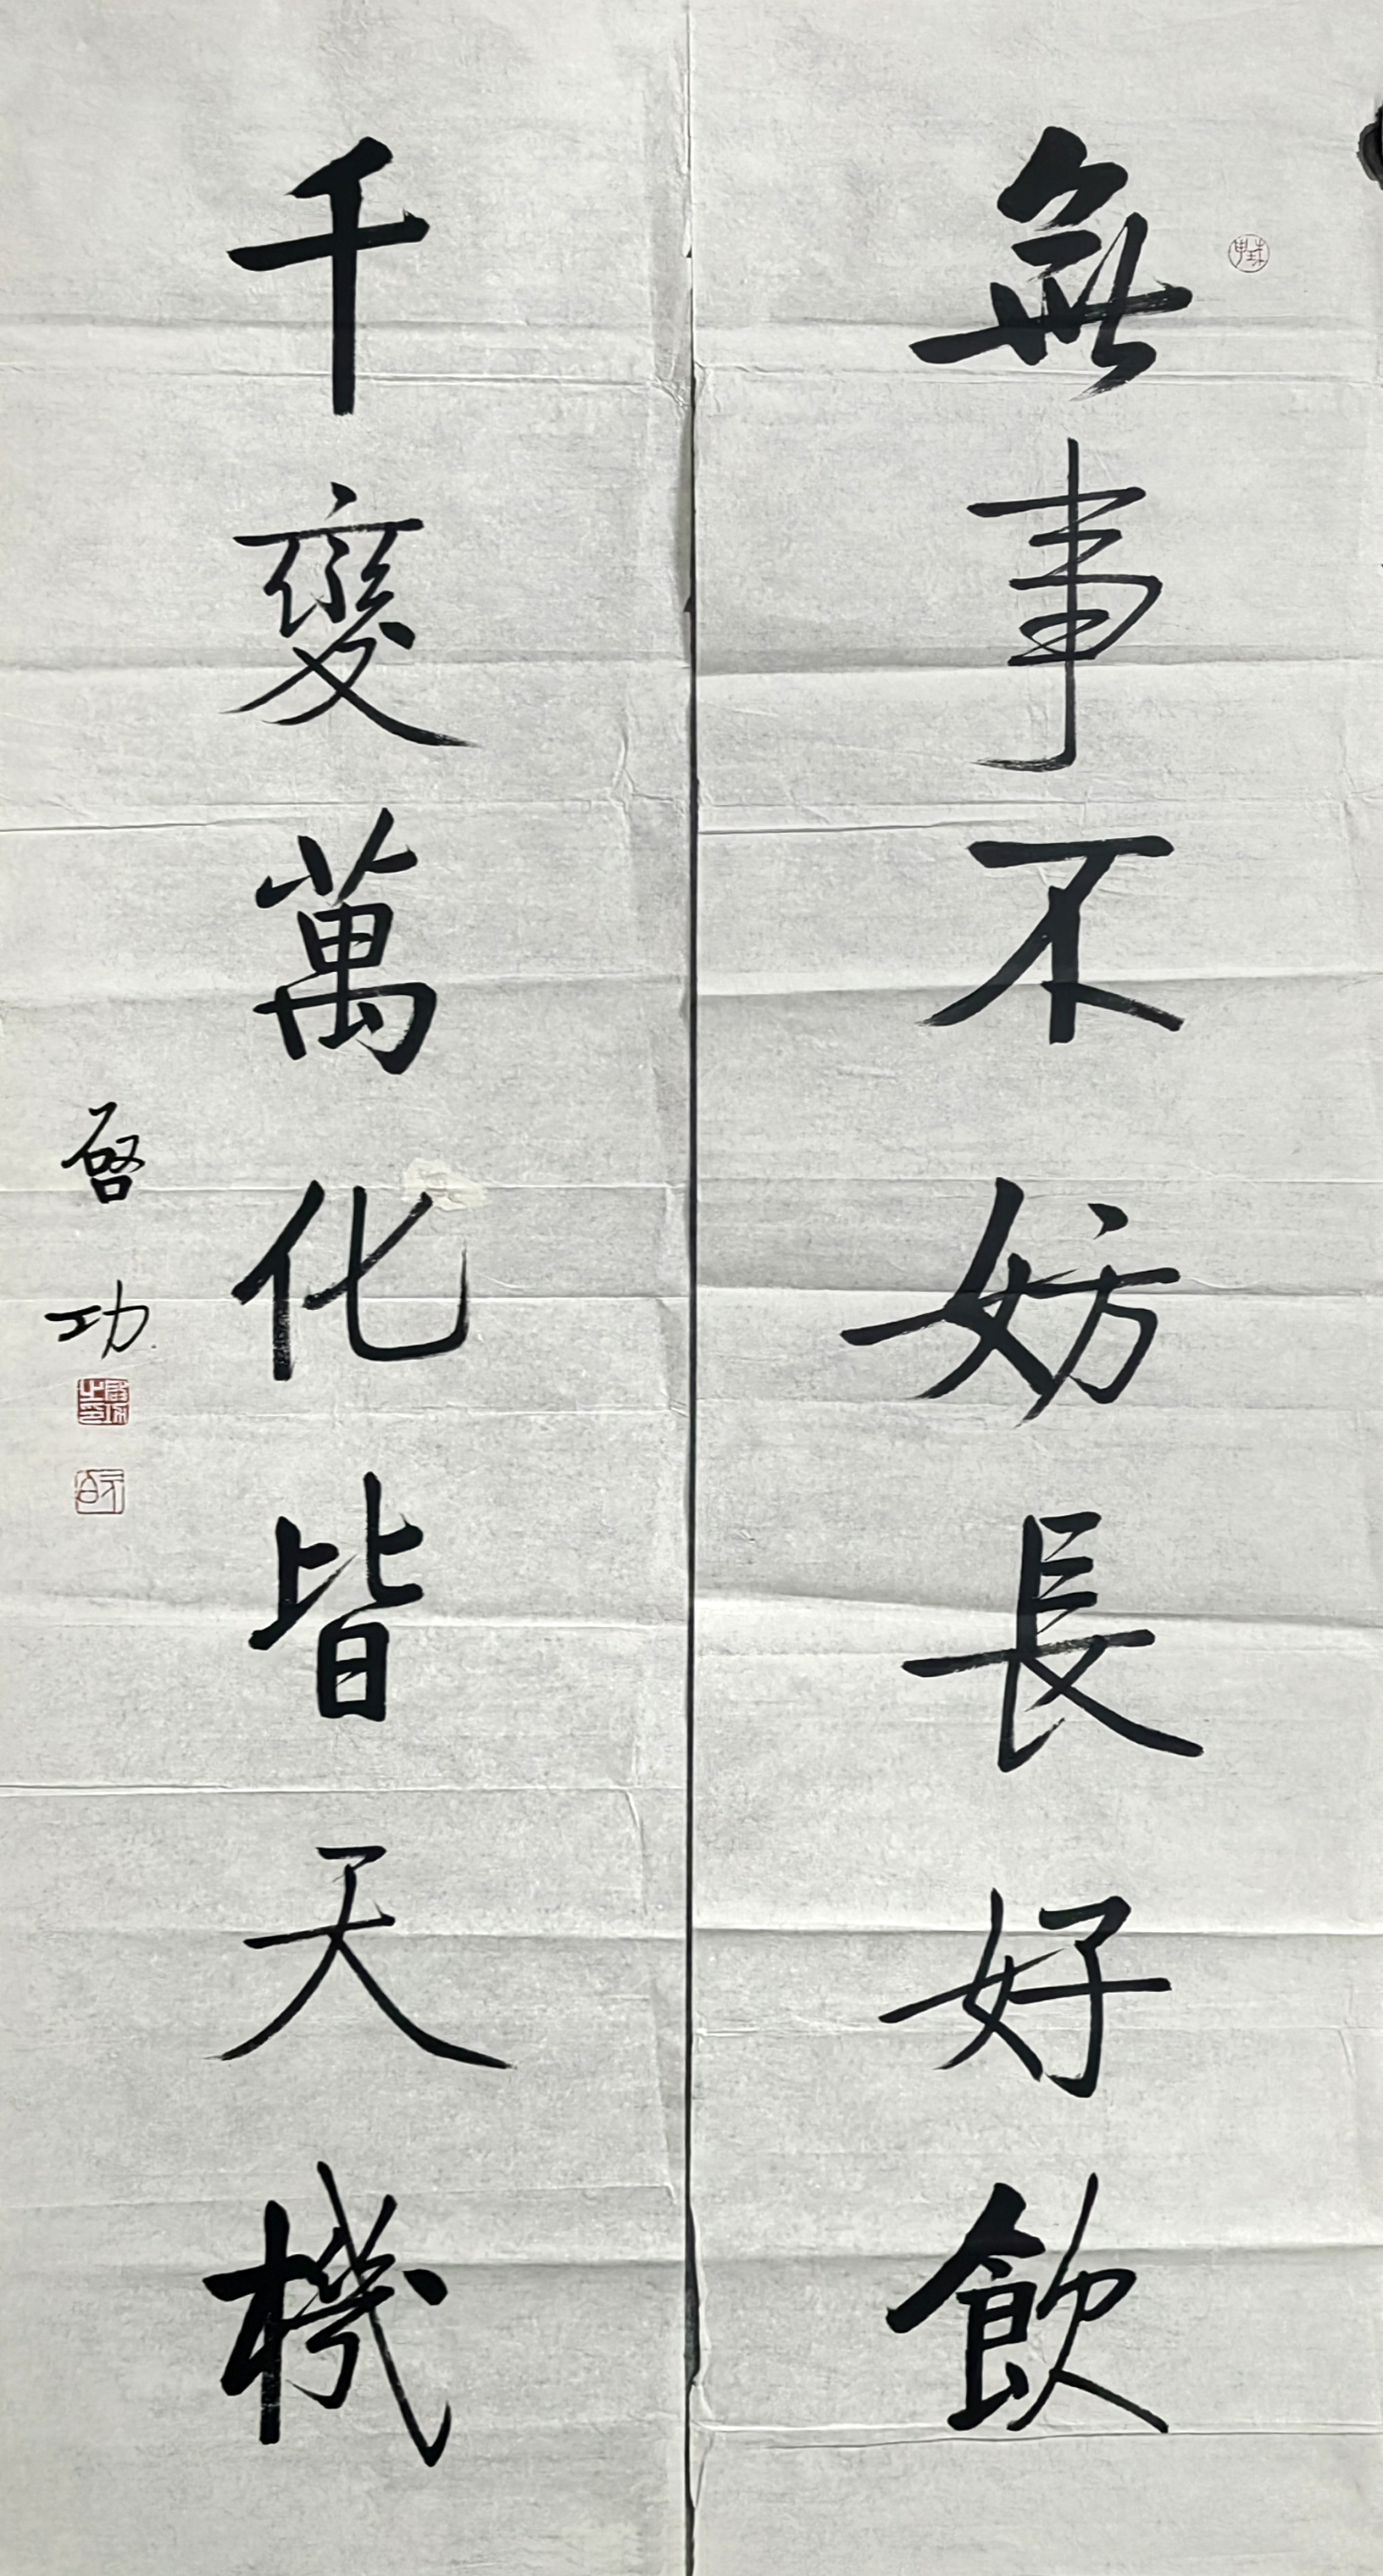 無事不妨長好飲
千變萬化皆天機
啓功